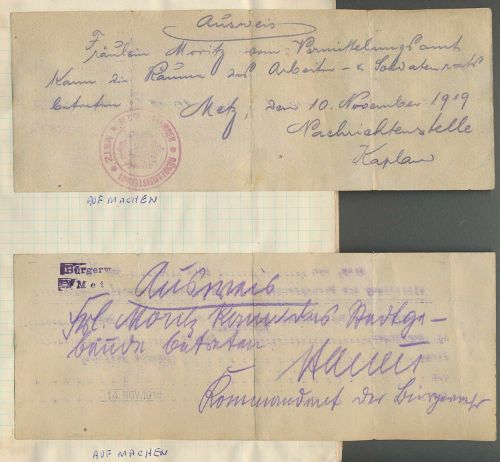 Ausweis
Fräulein Moritz vom Vermittelungsamt
kann die Räume des Arbeiter- & Soldatenrats
betreten.
Metz, den 10. November 1919
Nachrichtenstelle
Kaplan
BÜRGERMEISTERAMT METZ
AUFMACHEN
Bürgerw
Met
Ausweis
Frl. Moritz kann das Stadtge-
bäude betreten.
14. NOV. 1918
Kommandant der Bürgerwehr
AUFMACHEN